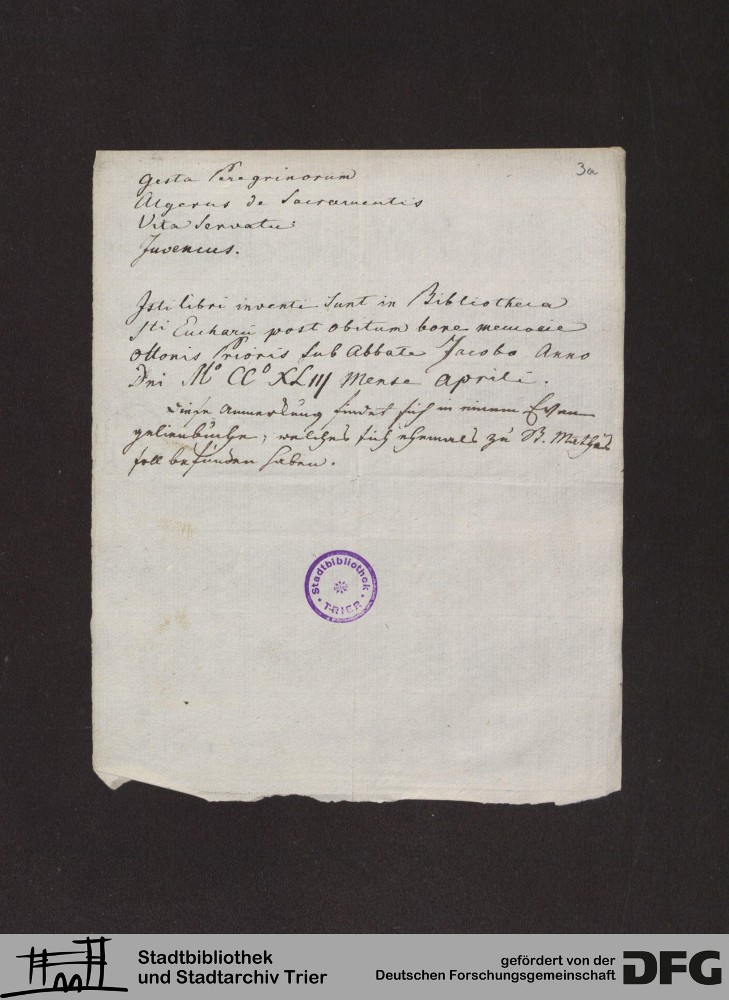 3a
Gesta Peregrinorum
Algerus de Sacramentis
Vita Servatii
Juvencus.
Isti libri inventi sunt in Bibliotheca
Sti Eucharii post obitum bone memorie
Ottonis Prioris sub Abbate Jacobo Anno
Dni Mo CCo XLIII Mense aprili.
Diese Anmerkung findet sich in einem Evan
gelienbuche, welches sich ehemals zu S. Mathias
soll befunden haben.
Stadtbibliothek
TRIER
Stadtbibliothek
und Stadtarchiv Trier
gefördert von der
Deutschen Forschungsgemeinschaft
DFG